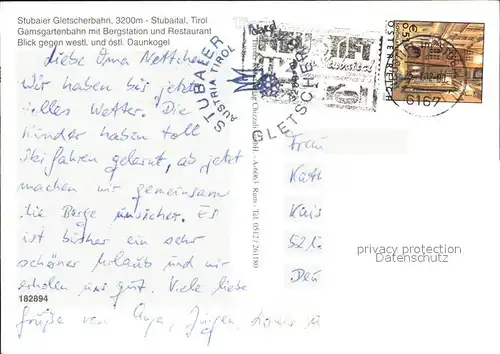 Stubaier Gletscherbahn, 3200m - Stubaital, Tirol
Gamsgartenbahn mit Bergstation und Restaurant
Blick gegen westl. und östl. Daunkogel
Liebe Oma Nettchen
Wir haben bis jetzt
tolles Wetter. Die
Kinder haben toll
Ski fahren gelernt, ab jetzt
machen wir gemeinsam
die Berge unsicher. Es
ist bisher ein sehr
schöner Urlaub und wir
erholen uns gut. Viele liebe
Grüße von Anja, Jürgen,
182894
STUBAIER
AUSTRIA TIROL
GLETSCHER
6167
ÖSTERREICH
A-6063 Rum - Tel. 0512 / 261180
Frau
Kath
Kais
521
Deu
privacy protection
Datenschutz